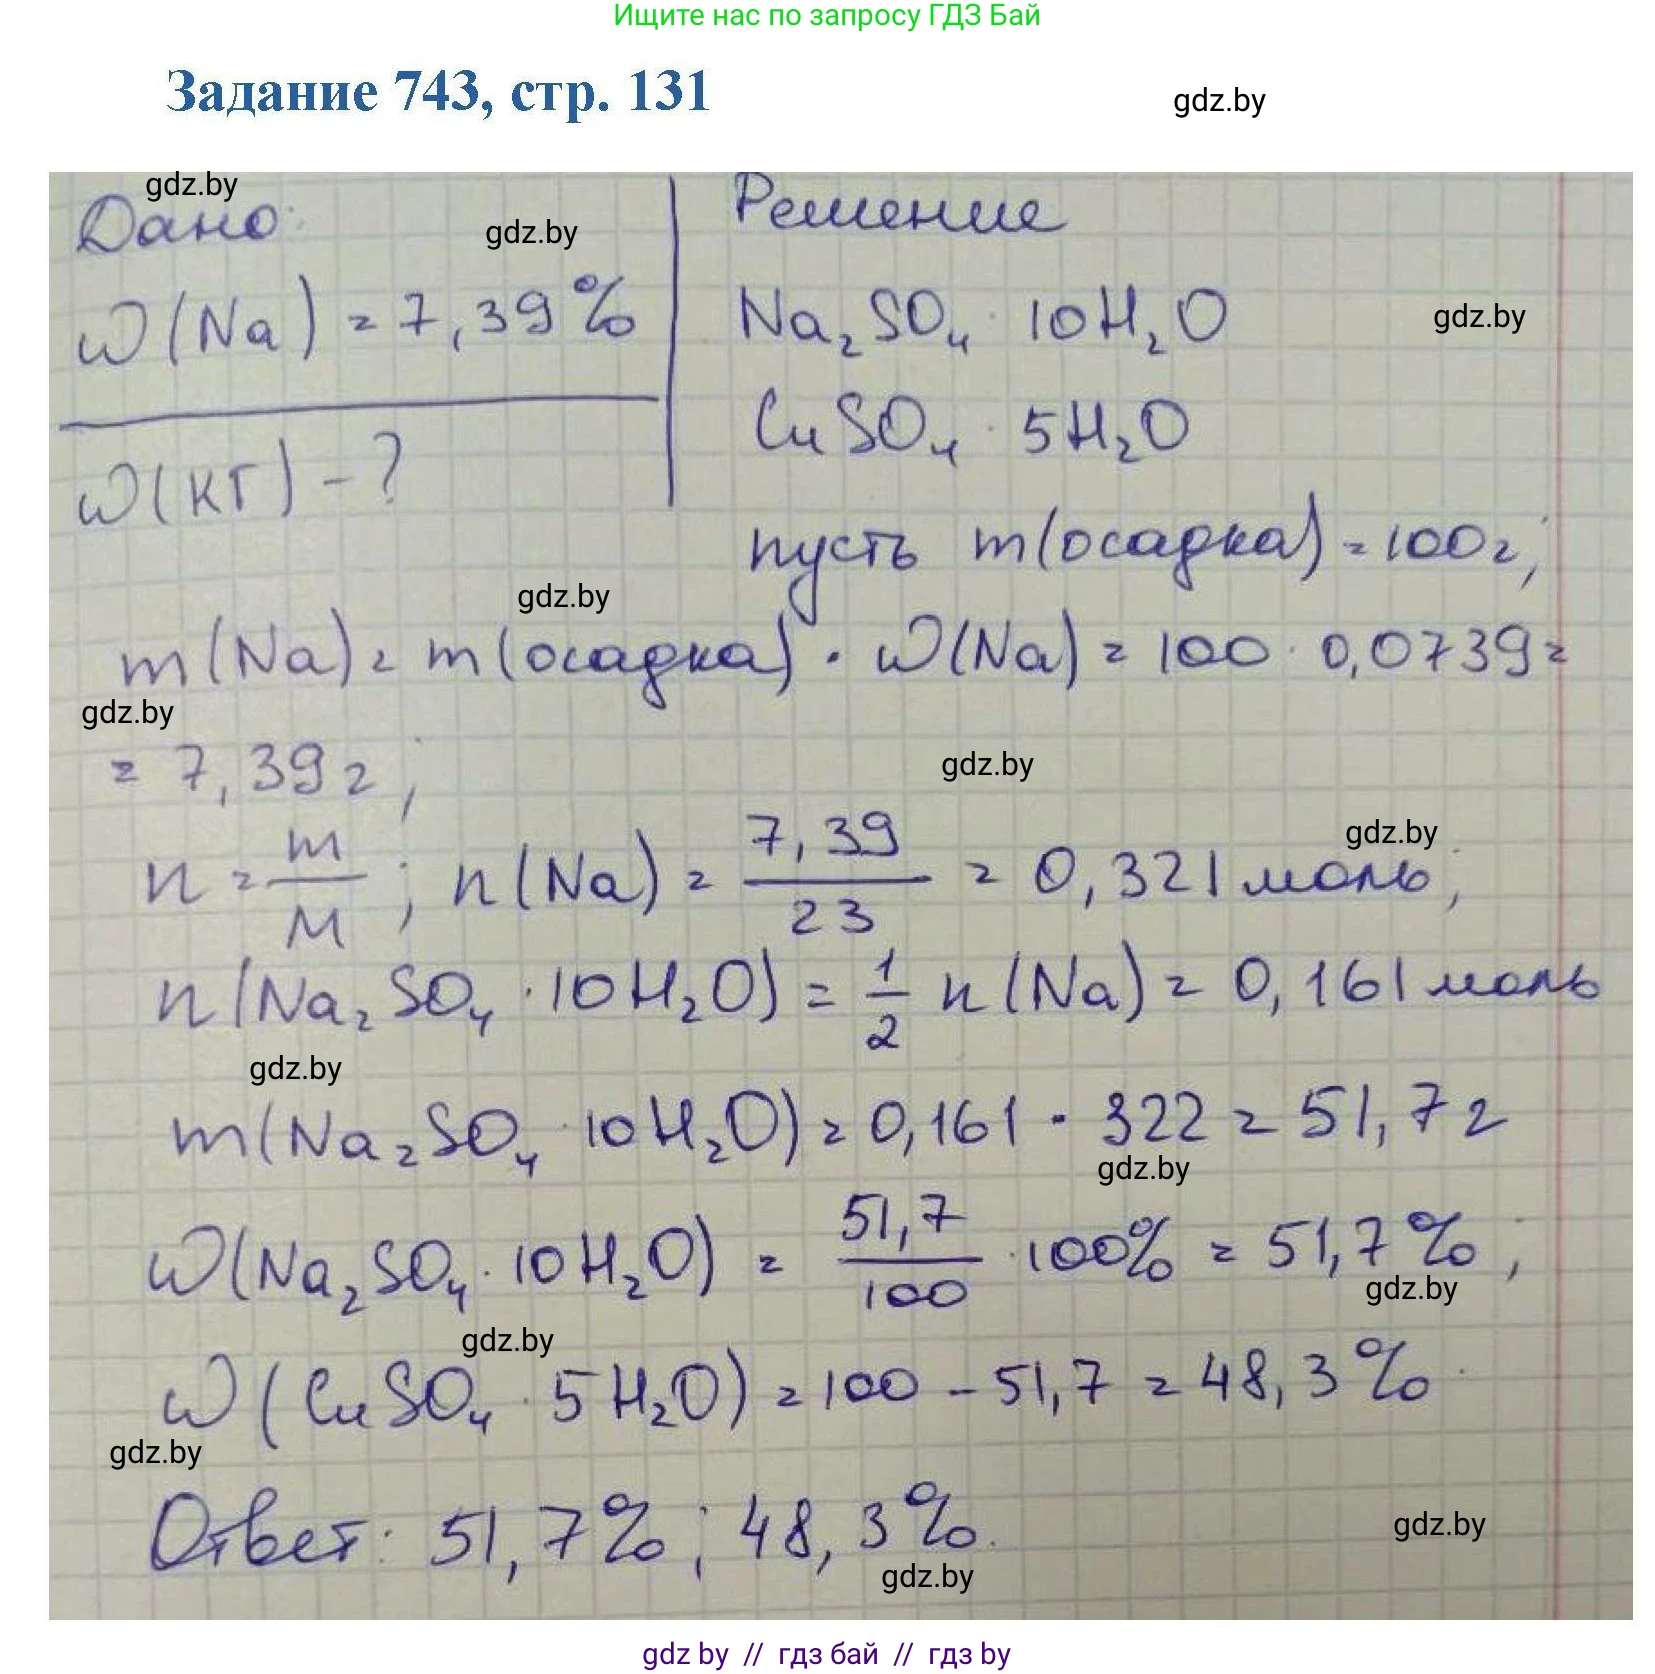 Ищите нас по запросу ГДЗ Бай
Задание 743, стр. 131
gdz.by
gdz.by
Дано:
gdz.by
Решение
ω(Na) = 7,39%
Na₂SO₄ · 10H₂O
gdz.by
CuSO₄ · 5H₂O
ω(КГ) - ?
пусть m(осадка) = 100г;
gdz.by
m(Na) = m(осадка) · ω(Na) = 100 · 0,0739 =
gdz.by
= 7,39г;
gdz.by
gdz.by
n = m/M; n(Na) = 7,39/23 = 0,321 моль;
n(Na₂SO₄ · 10H₂O) = 1/2 n(Na) = 0,161 моль
gdz.by
m(Na₂SO₄ · 10H₂O) = 0,161 · 322 = 51,7г
gdz.by
ω(Na₂SO₄ · 10H₂O) = 51,7/100 · 100% = 51,7%;
gdz.by
gdz.by
ω(CuSO₄ · 5H₂O) = 100 - 51,7 = 48,3%.
gdz.by
Ответ: 51,7%; 48,3%.
gdz.by
gdz.by
gdz by // гдз бай // гдз by